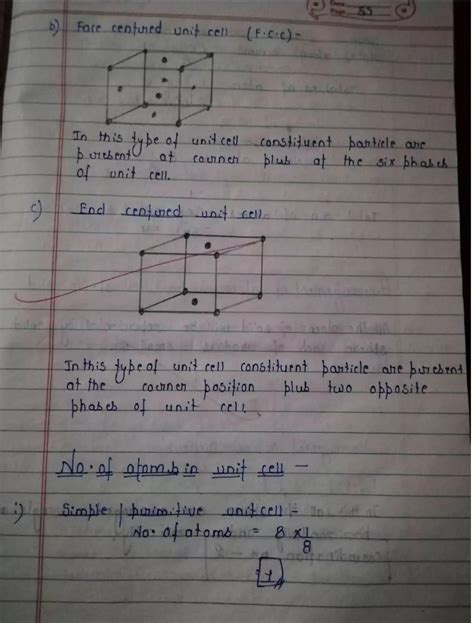 55
b) Face centured unit cell (F.C.C) -
In this type of unit cell constituent particle are
puresent at courner plus at the six phases
of unit cell.
c) End centured unit cell
In this type of unit cell constituent particle are puresent
at the courner position plus two opposite
phases of unit cell.
No. of atoms in unit cell -
i) Simple / purimitive unit cell :-
No. of atoms = 8 × 1/8
= 1